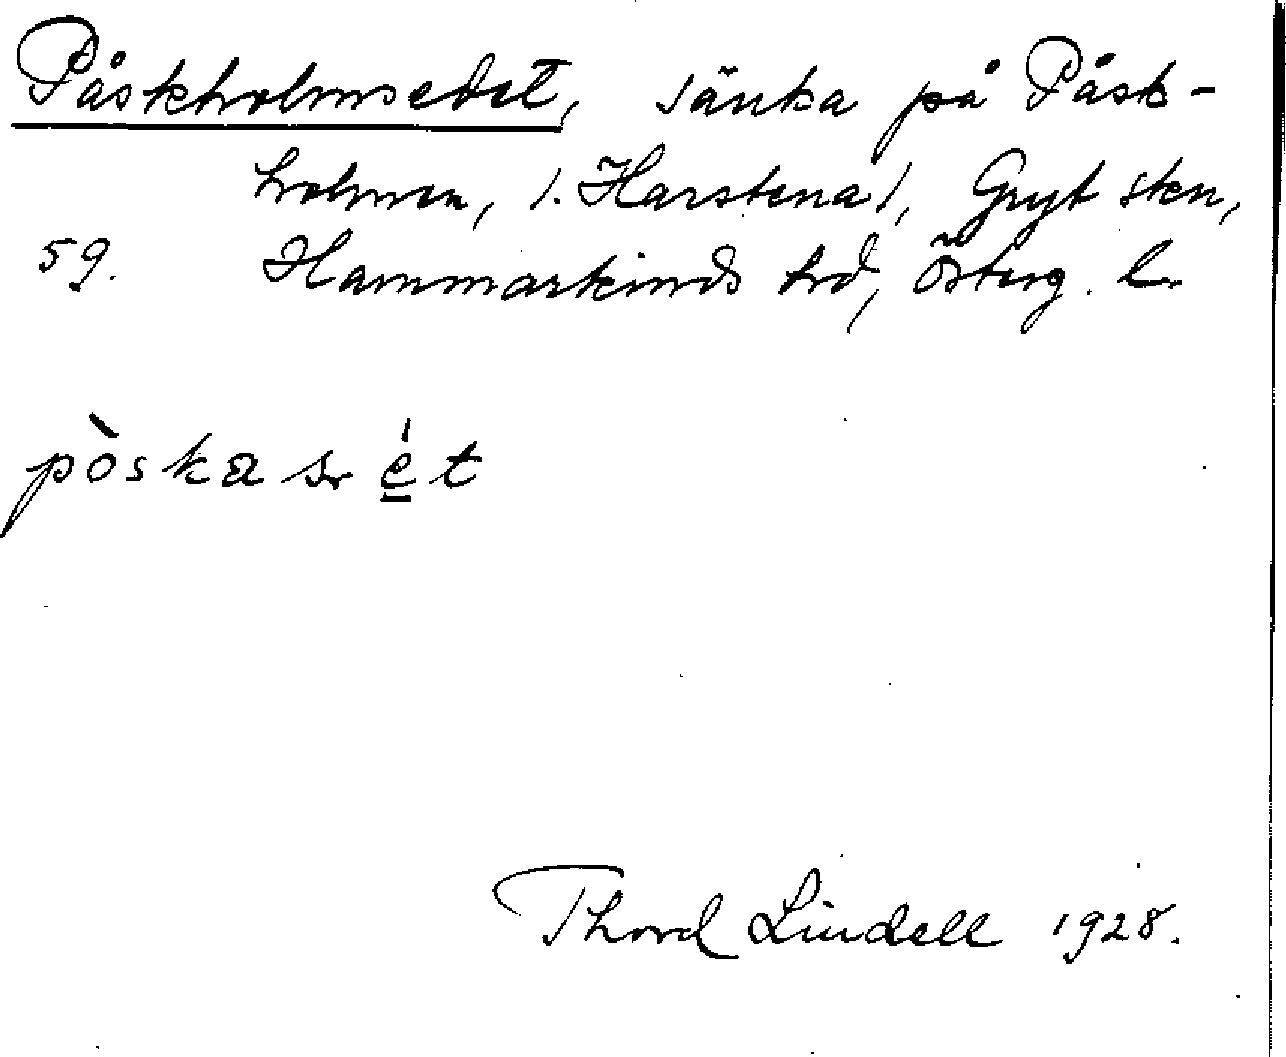 Påskholmsedet, sänka på Påsk-
holmen, /. Harstena /, Gryt skn,
59. Hammarkinds hd, Österg. l.
pòskasét
Thord Lindell 1928.